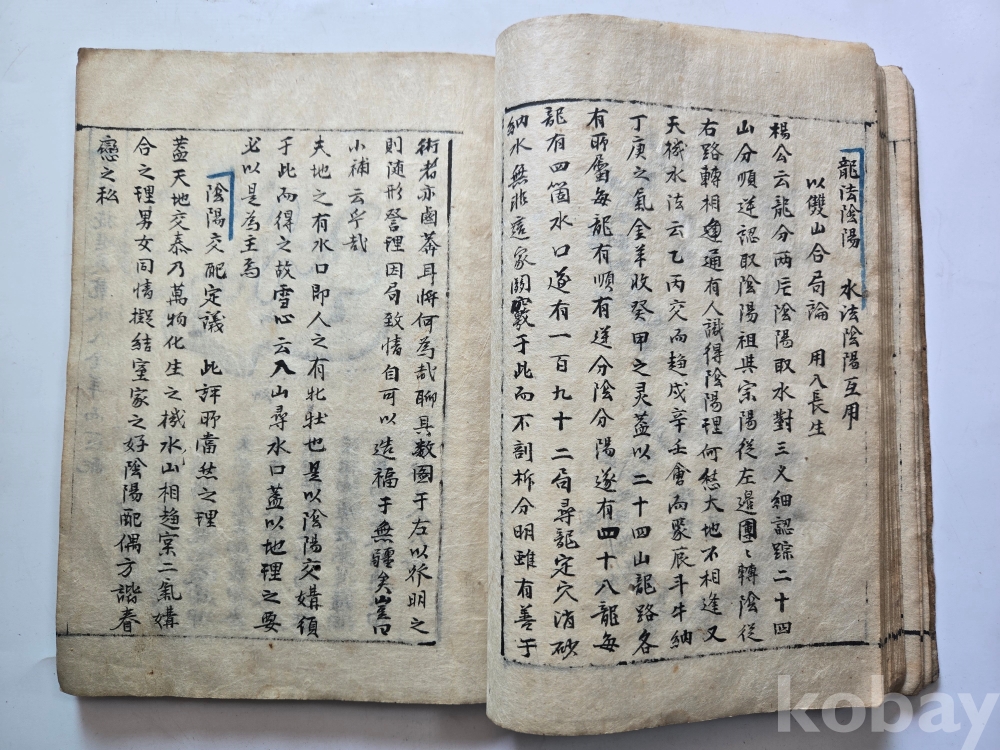 龍法陰陽 水法陰陽互用
以雙山合局論 用入長生
楊公云龍分两片陰陽取水對三义細認踪二十四
山分順逆認取陰陽祖與宗陽從左邉團〻轉陰從
右路轉相通有人識得陰陽理何愁大地不相逢又
天機水法云乙丙交而趋戍辛壬會而聚辰斗牛納
丁庚之氣金羊收癸甲之灵盖以二十四山龍路各
有所屬每龍有順有逆分陰分陽遂有四十八龍每
龍有四箇水口遂有一百九十二局尋龍定穴消砂
納水無非這家関竅于此而不剖柝分明雖有善于
術者亦鹵莽耳將何為㢤聊具数圖于左以發明之
則随形登理因局致情自可以造福于無疆矣豈曰
小補云乎㢤
夫地之有水口即人之有牝牡也是以陰陽交媾須
于此而得之故雪心云入山尋水口盖以地理之要
以是為主焉
陰陽交配定議 此評昈當然之理
蓋天地交泰乃萬物化生之機水山相趨寔二氣媾
合之理男女同情擬結室家之好陰陽配偶方諧春
戀之私
kobay